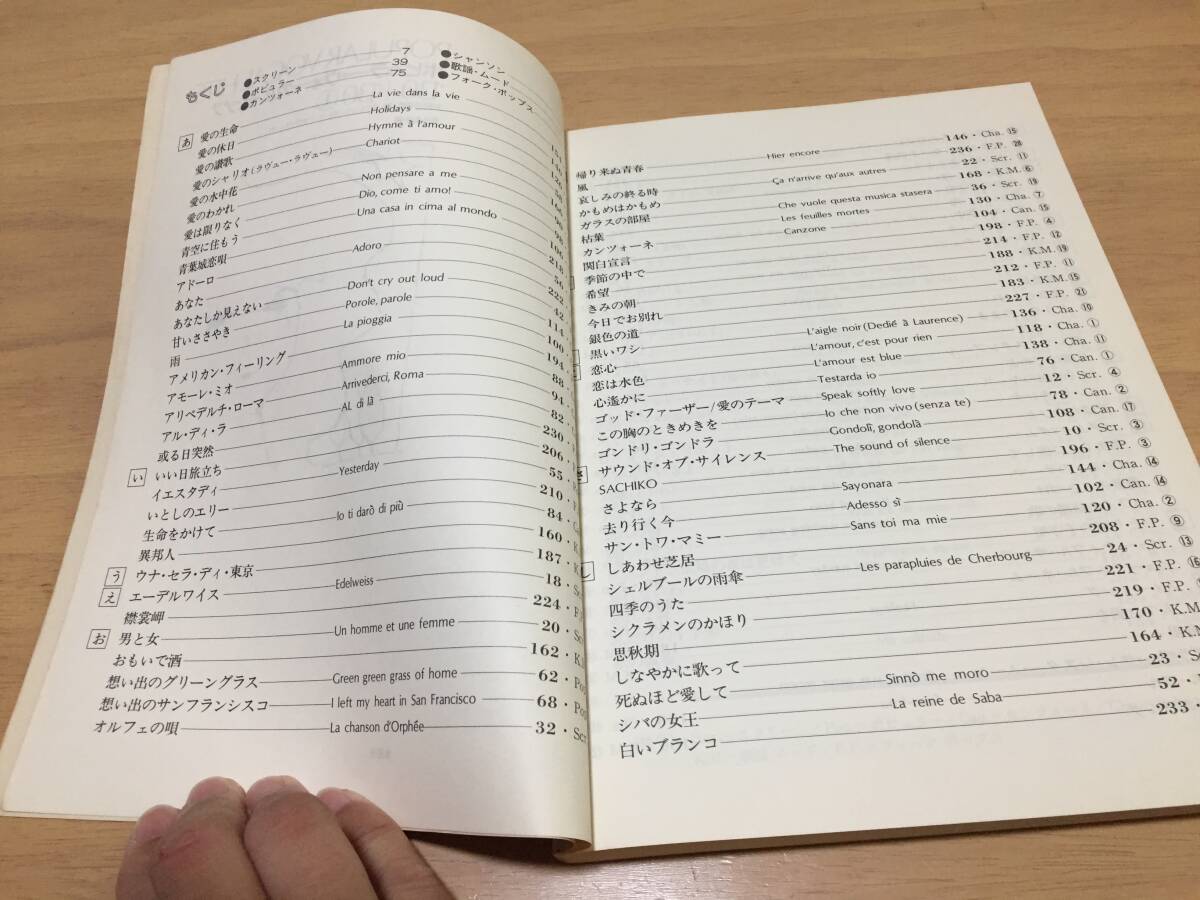 もくじ
●スクリーン 7
●ポピュラー 39
●カンツォーネ 75
●シャンソン
●歌謡・ムード
●フォーク・ポップス
あ 愛の生命 La vie dans la vie
愛の休日 Holidays
愛の讃歌 Hymne à l'amour
愛のシャリオ(ラヴェー・ラヴェー) Chariot
愛の水中花
愛のわかれ Non pensare a me
愛は限りなく Dio, come ti amo!
青空に住もう Una casa in cima al mondo
青葉城恋唄
アドーロ Adoro
あなた
あなたしか見えない Don't cry out loud
甘いささやき Porole, parole
雨 La pioggia
アメリカン・フィーリング
アモーレ・ミオ Ammore mio 88
アリベデルチ・ローマ Arrivederci, Roma 94
アル・ディ・ラ AL di là 82
或る日突然 230
い いい日旅立ち 206
イエスタディ Yesterday 55
いとしのエリー 210
生命をかけて Io ti darò di più 84
異邦人 160・K
う ウナ・セラ・ディ・東京 187・K
え エーデルワイス Edelweiss 18・S
襟裳岬 224・F
お 男と女 Un homme et une femme 20・Sc
おもいで酒 162・K.M
想い出のグリーングラス Green green grass of home 62・Pop
想い出のサンフランシスコ I left my heart in San Francisco 68・Pop
オルフェの唄 La chanson d'Orphée 32・Scr
帰り来ぬ青春 Hier encore 146・Cha. ⑮
風 236・F.P. ㉘
哀しみの終る時 Ça n'arrive qu'aux autres 22・Scr. ⑪
かもめはかもめ 168・K.M. ⑥
ガラスの部屋 Che vuole questa musica stasera 36・Scr. ⑲
枯葉 Les feuilles mortes 130・Cha. ⑦
カンツォーネ Canzone 104・Can. ⑮
関白宣言 198・F.P. ④
季節の中で 214・F.P. ⑫
希望 188・K.M. ⑲
きみの朝 212・F.P. ⑪
今日でお別れ 183・K.M. ⑮
銀色の道 227・F.P. ㉑
黒いワシ L'aigle noir (Dedié à Laurence) 136・Cha. ⑩
恋心 L'amour, c'est pour rien 118・Cha. ①
恋は水色 L'amour est blue 138・Cha. ⑪
心遙かに Testarda io 76・Can. ①
ゴッド・ファーザー/愛のテーマ Speak softly love 12・Scr. ④
この胸のときめきを Io che non vivo (senza te) 78・Can. ②
ゴンドリ・ゴンドラ Gondolì, gondolà 108・Can. ⑰
さ サウンド・オブ・サイレンス The sound of silence 10・Scr. ③
SACHIKO 196・F.P. ③
さよなら Sayonara 144・Cha. ⑭
去り行く今 Adesso sì 102・Can. ⑭
サン・トワ・マミー Sans toi ma mie 120・Cha. ②
し しあわせ芝居 208・F.P. ⑨
シェルブールの雨傘 Les parapluies de Cherbourg 24・Scr. ⑬
四季のうた 221・F.P. ⑯
シクラメンのかほり 219・F.P.
思秋期 170・K.M.
しなやかに歌って 164・K.M
死ぬほど愛して Sinnò me moro 23・Sc
シバの女王 La reine de Saba 52・
白いブランコ 233・